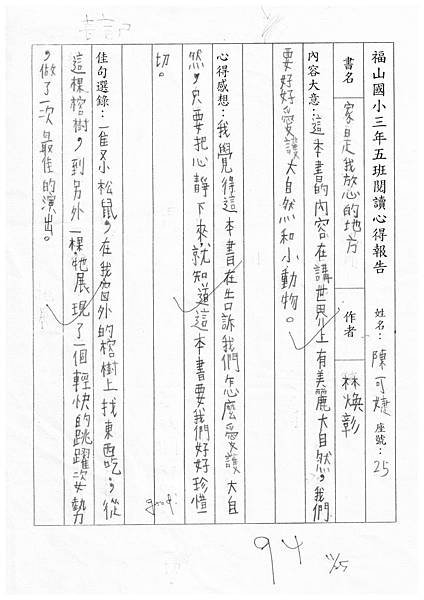 福山國小三年五班閱讀心得報告 姓名：陳可婕 座號：25
書名 家是我放心的地方 作者 林煥彰
內容大意：這本書的內容在講世界上有美麗大自然，我們
要好好愛護大自然和小動物。
心得感想：我覺得這本書在告訴我們怎麼愛護大自
然，只要把心靜下來，就知道這本書要我們好好珍惜一
切。
佳句選錄：一隻小松鼠，在我窗外的榕樹上找東西吃，從
這棵榕樹，到另外一棵，牠展現了一個輕快的跳躍姿勢
，做了一次最佳的演出。
good!
94
11/25